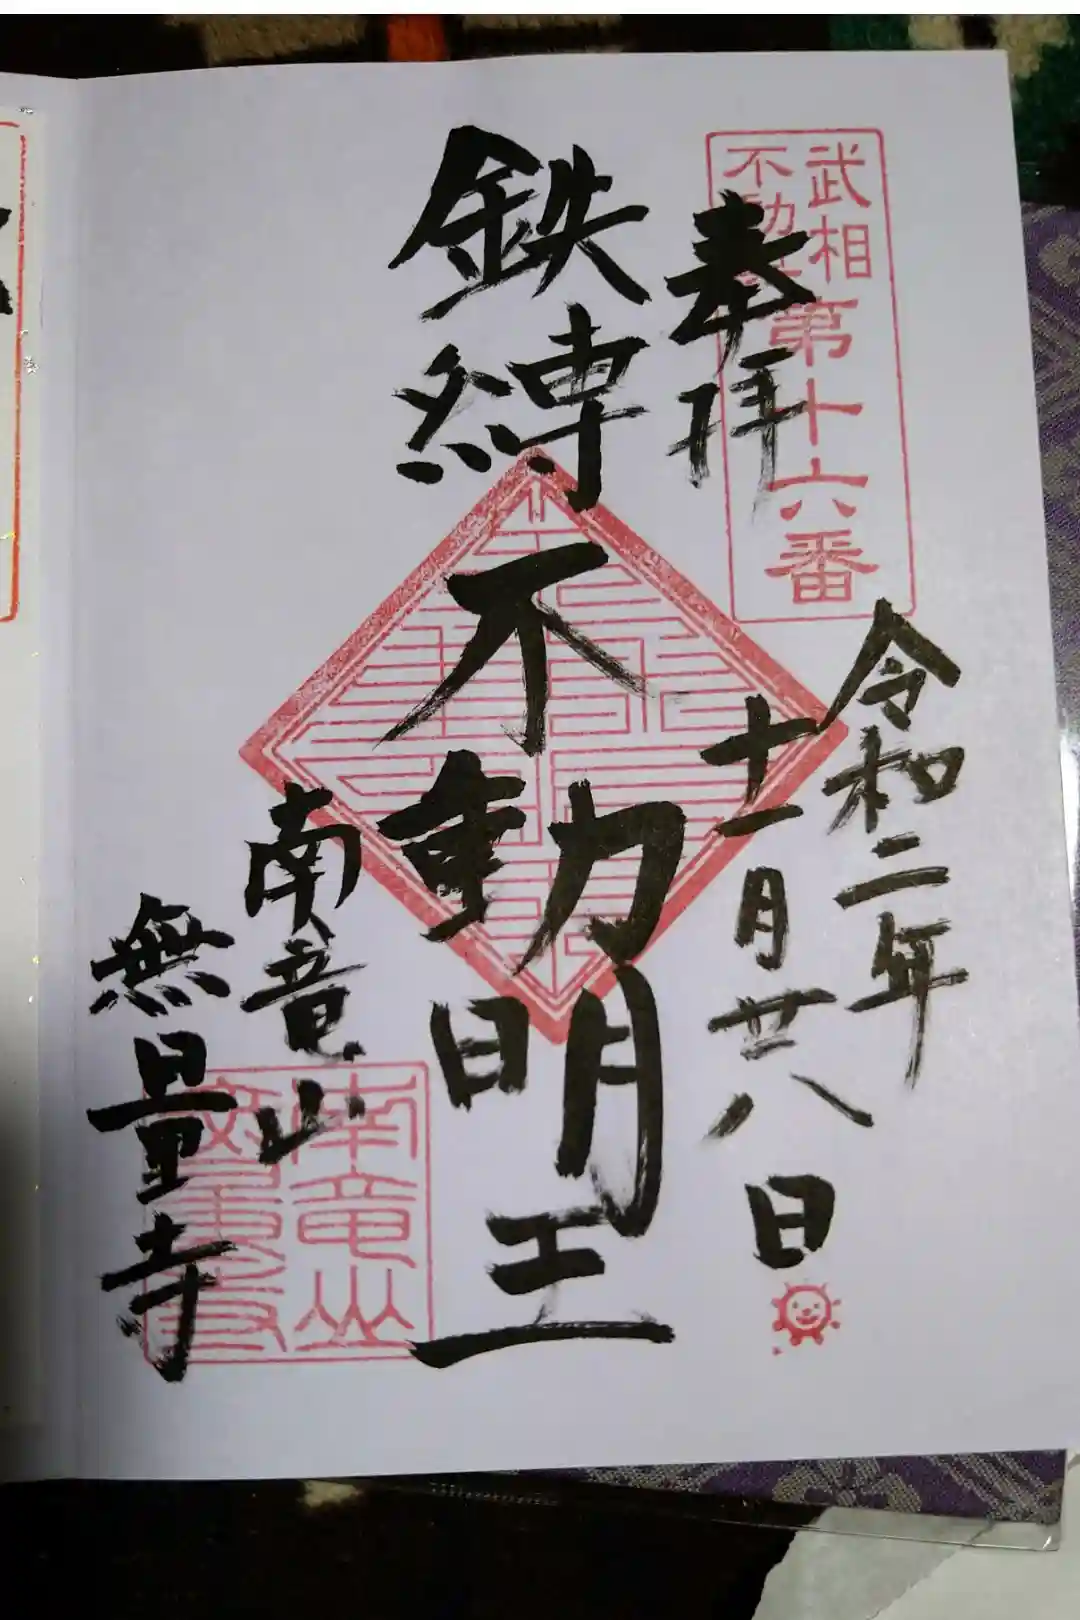 武相
不動
第十六番
奉拝
令和二年
十一月廿八日
鉄縛不動明王
南竜山
無量寺
南竜山